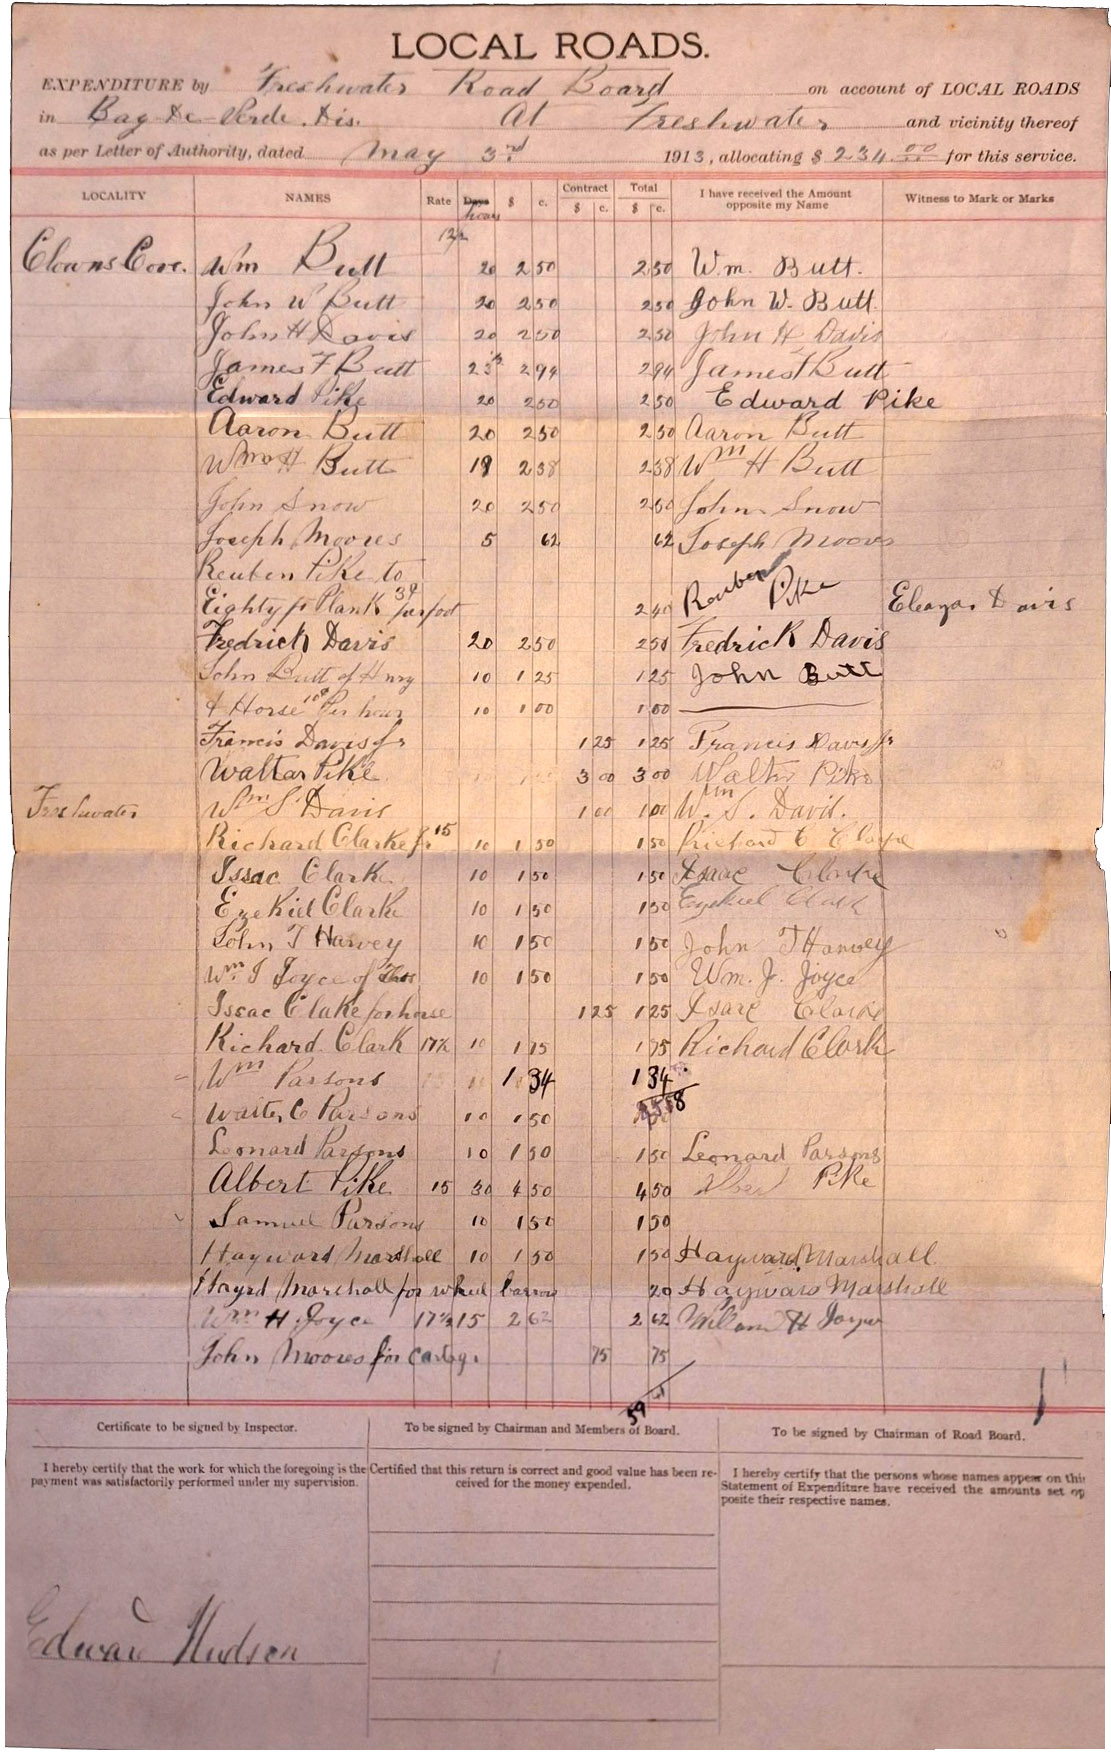 LOCAL ROADS.
EXPENDITURE by Freshwater Road Board on account of LOCAL ROADS
in Bay-De-Verde. Dis. At Freshwater and vicinity thereof
as per Letter of Authority, dated May 3rd 1913, allocating $ 234.00 for this service.
LOCALITY NAMES Rate Days hours $ c. Contract $ c. Total $ c. I have received the Amount opposite my Name Witness to Mark or Marks
12½
Clowns Cove. Wm Butt 20 2 50 2 50 Wm. Butt.
John W Butt 20 2 50 2 50 John W. Butt
John H Davis 20 2 50 2 50 John H Davis
James F Butt 23½ 2 94 2 94 James F Butt
Edward Pike 20 2 50 2 50 Edward Pike
Aaron Butt 20 2 50 2 50 Aaron Butt
Wm H Butt 19 2 38 2 38 Wm H Butt
John Snow 20 2 50 2 50 John Snow
Joseph Moores 5 62 62 Joseph Moores
Reuben Pike to
Eighty ft Plank 3¢ per foot 2 40 Reuben Pike Eleazar Davis
Fredrick Davis 20 2 50 2 50 Fredrick Davis
John Butt of Henry 10 1 25 1 25 John Butt
& Horse 10¢ Per hour 10 1 00 1 00
Francis Davis Jr 1 25 1 25 Francis Davis Jr
Walter Pike 3 00 3 00 Walter Pike
Freshwater Wm S. Davis 1 00 1 00 Wm. S. David.
Richard Clarke Jr 15 10 1 50 1 50 Richard Clarke
Issac Clarke 10 1 50 1 50 Isaac Clarke
Ezekiel Clarke 10 1 50 1 50 Ezekiel Clark
John T Harvey 10 1 50 1 50 John T Harvey
Wm J Joyce of Thos 10 1 50 1 50 Wm. J. Joyce
Issac Clake for horse 1 25 1 25 Isaac Clarke
Richard Clark 17½ 10 1 75 1 75 Richard Clark
Wm Parsons 1 34 1 34
Walter C Parsons 10 1 50
Leonard Parsons 10 1 50 1 50 Leonard Parsons
Albert Pike 15 30 4 50 4 50 Albert Pike
Samuel Parsons 10 1 50 1 50
Hayward Marshall 10 1 50 1 50 Hayward Marshall
Hayrd Marshall for wheel barrow 20 Hayward Marshall
Wm H Joyce 17½ 15 2 62 2 62 Wilam H Joyce
John Moores for Cartage 75 75
59
Certificate to be signed by Inspector. To be signed by Chairman and Members of Board. To be signed by Chairman of Road Board.
I hereby certify that the work for which the foregoing is the
payment was satisfactorily performed under my supervision.
Certified that this return is correct and good value has been re-
ceived for the money expended.
I hereby certify that the persons whose names appear on this
Statement of Expenditure have received the amounts set op
posite their respective names.
Edward Hudson